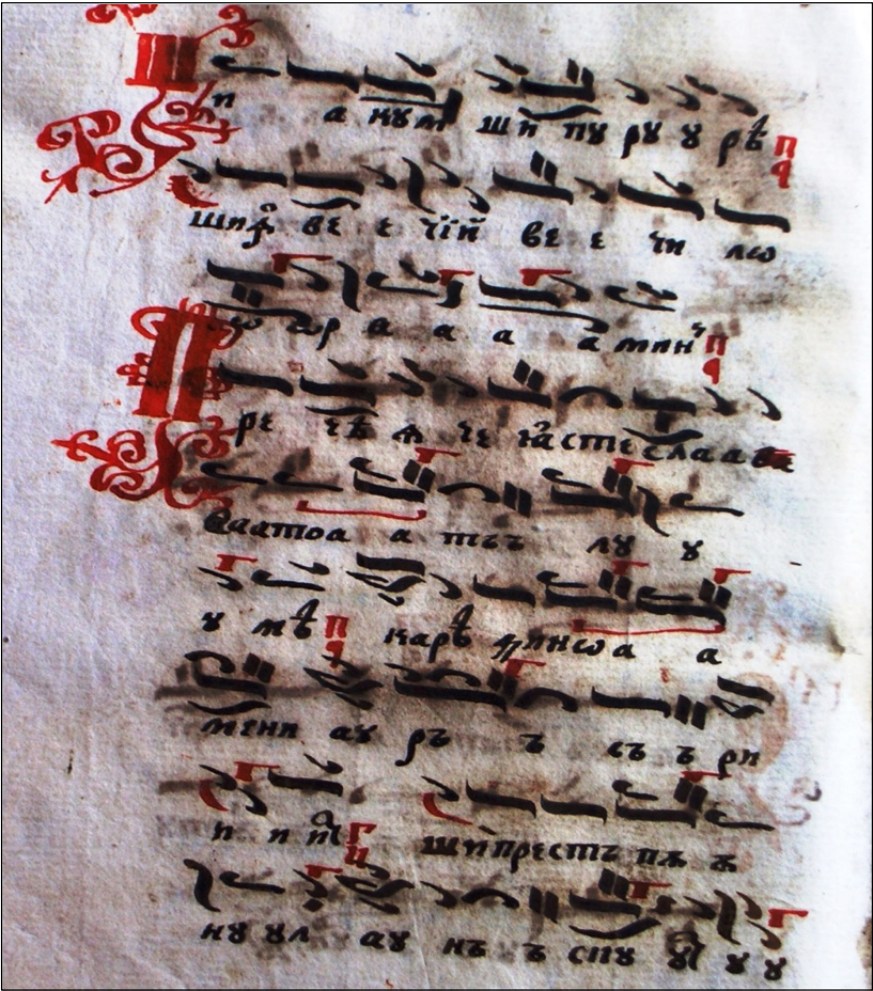 Ши а кꙋм ши пꙋ рꙋ ꙋ рѣ
шиꙟ ве е чїй ве е чи лѡ
ѡ ѡр а а а а мин
Пре чѣ ѧ че ꙗсте слааве
ваатоа а тъъ лꙋ ꙋ
ꙋ мѣ карѣ а
мени аꙋ ръ ъ съ ъ ри
и и й шипрестъ пѫ ѫ
нꙋ ꙋл аꙋ нъ ъ спꙋ ꙋ ꙋ ꙋ